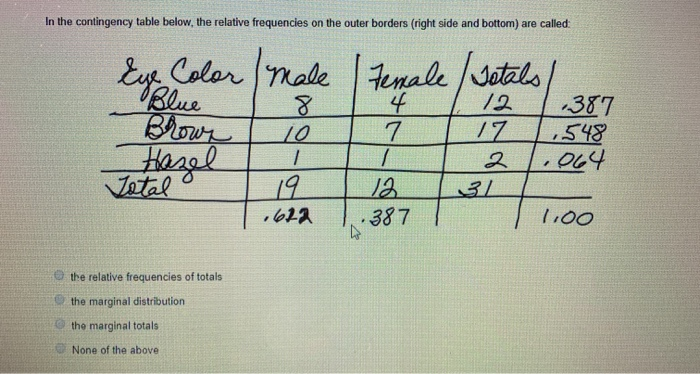 In the contingency table below, the relative frequencies on the outer borders (right side and bottom) are called:
Eye Color Male Female Totals
Blue 8 4 12 .387
Brown 10 7 17 .548
Hazel 1 1 2 .064
Total 19 12 31
.622 .387 1.00
the relative frequencies of totals
the marginal distribution
the marginal totals
None of the above